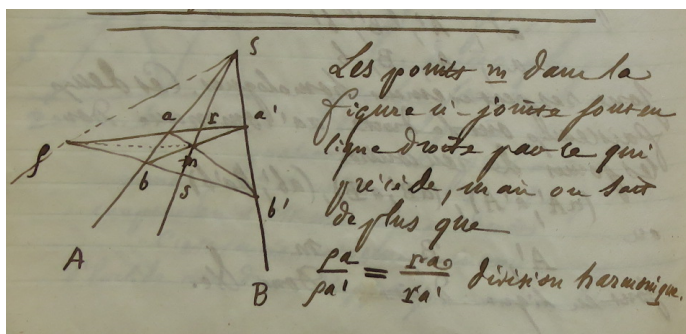 S
Les points m dans la
a r a'
figure ci-jointe sont en
ρ
m
ligne droite par ce qui
b s
précède, mais on sait
b'
de plus que
A
B
ρa/ρa' = ra/ra' division harmonique.